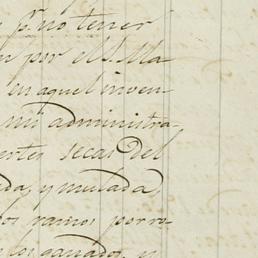 y pr. no tener
por el S. Ma
en aquel inven-
mi administra-
secas del
y mulada,
ramos por ra-
ganados, y